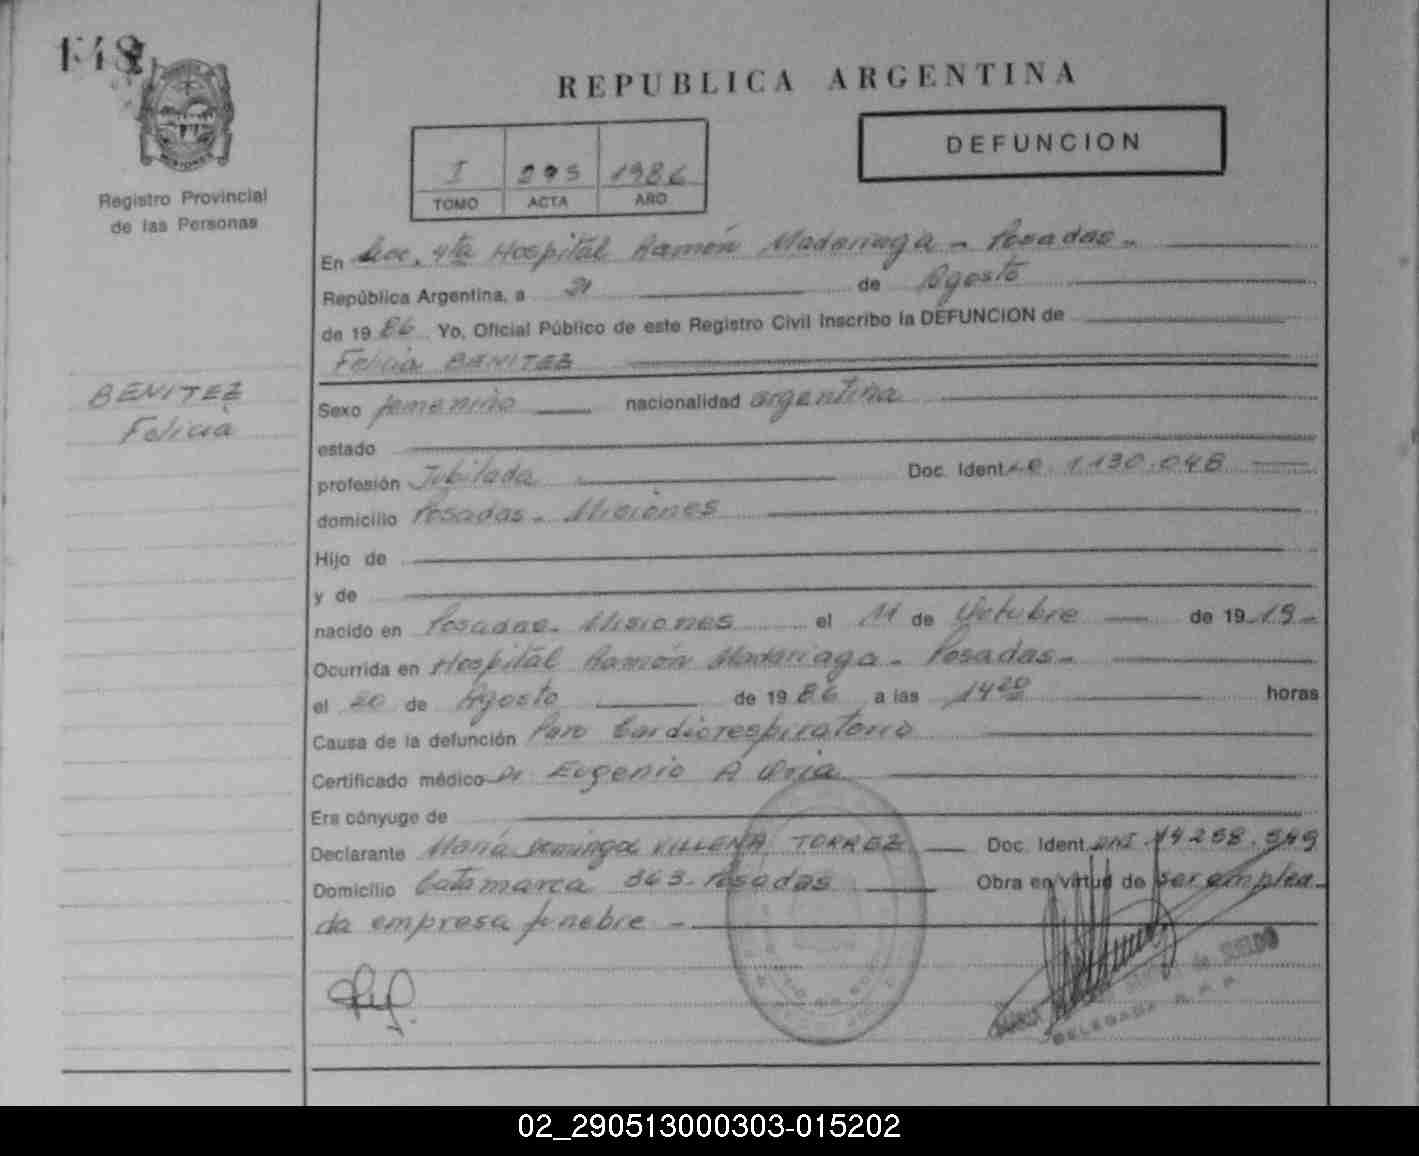 148
REPUBLICA ARGENTINA
DEFUNCION
I 295 1986
TOMO ACTA AÑO
Registro Provincial
de las Personas
En Secc. 4ta Hospital Ramón Madariaga - Posadas -
República Argentina, a 21 de Agosto
de 19 86 Yo, Oficial Público de este Registro Civil inscribo la DEFUNCION de
Felicia BENITEZ
BENITEZ
Felicia
Sexo femenino nacionalidad argentina
estado
profesión Jubilada Doc. Ident. L.C. 1.130.048
domicilio Posadas - Misiones
Hijo de
y de
nacido en Posadas - Misiones el 11 de Octubre de 19 19 -
Ocurrida en Hospital Ramón Madariaga - Posadas -
el 20 de Agosto de 19 86 a las 14 20 horas
Causa de la defunción Paro Cardiorespiratorio
Certificado médico Dr Eugenio A Oria
Era cónyuge de
Declarante María Dominga VILLENA TORREZ Doc. Ident. DNI 14.258.549
Domicilio Catamarca 363 - Posadas Obra en virtud de ser emplea-
da empresa fúnebre -
DELEGADA
02_290513000303-015202